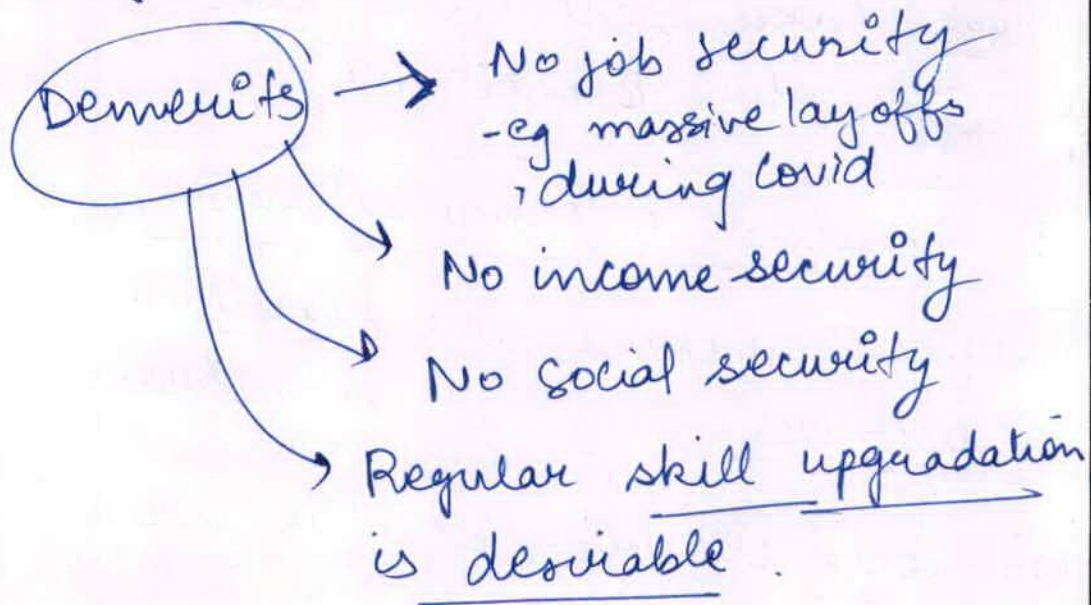 Demerits
No job security
-eg massive layoffs
, during Covid
No income security
No social security
Regular skill upgradation
is desirable.